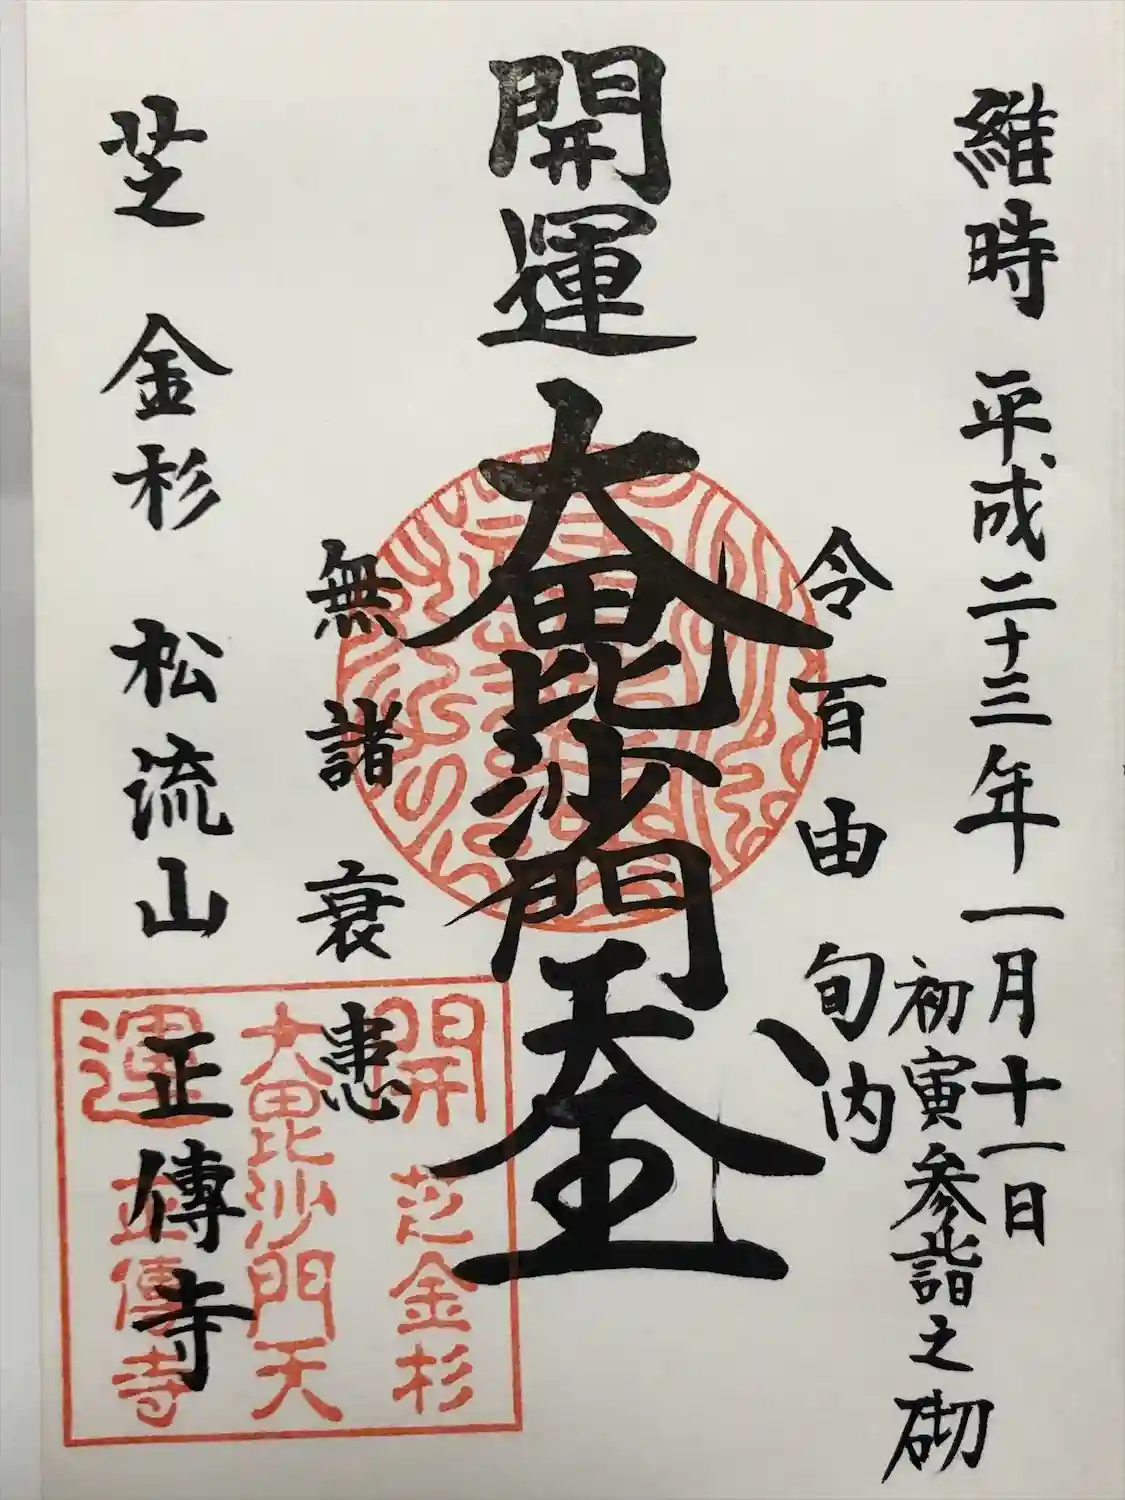 維時 平成二十三年一月十一日
初寅参詣之砌
令百由旬内
開運大毘沙門天王
無諸衰患
芝 金杉 松流山 正傳寺
開運
大毘沙門天
芝金杉
正傳寺